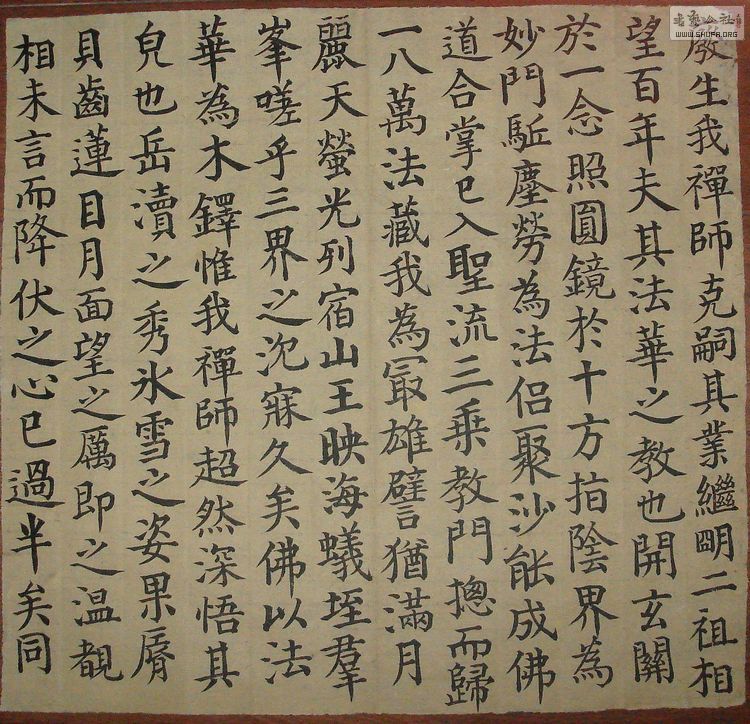 厳生我禪師克嗣其業繼明二祖相
望百年夫其法華之教也開玄關
於一念照圓鏡於十方指陰界為
妙門駈塵勞為法侶聚沙能成佛
道合掌已入聖流三乘教門揔而歸
一八萬法藏我為冣雄譬猶滿月
麗天螢光列宿山王映海蟻垤羣
峯嗟乎三界之沉寐久矣佛以法
華為木鐸惟我禪師超然深悟其
皃也岳瀆之秀氷雪之姿果脣
貝齒蓮目月面望之厲即之温覩
相未言而降伏之心已過半矣同
书艺公社
WWW.SHUFA.ORG